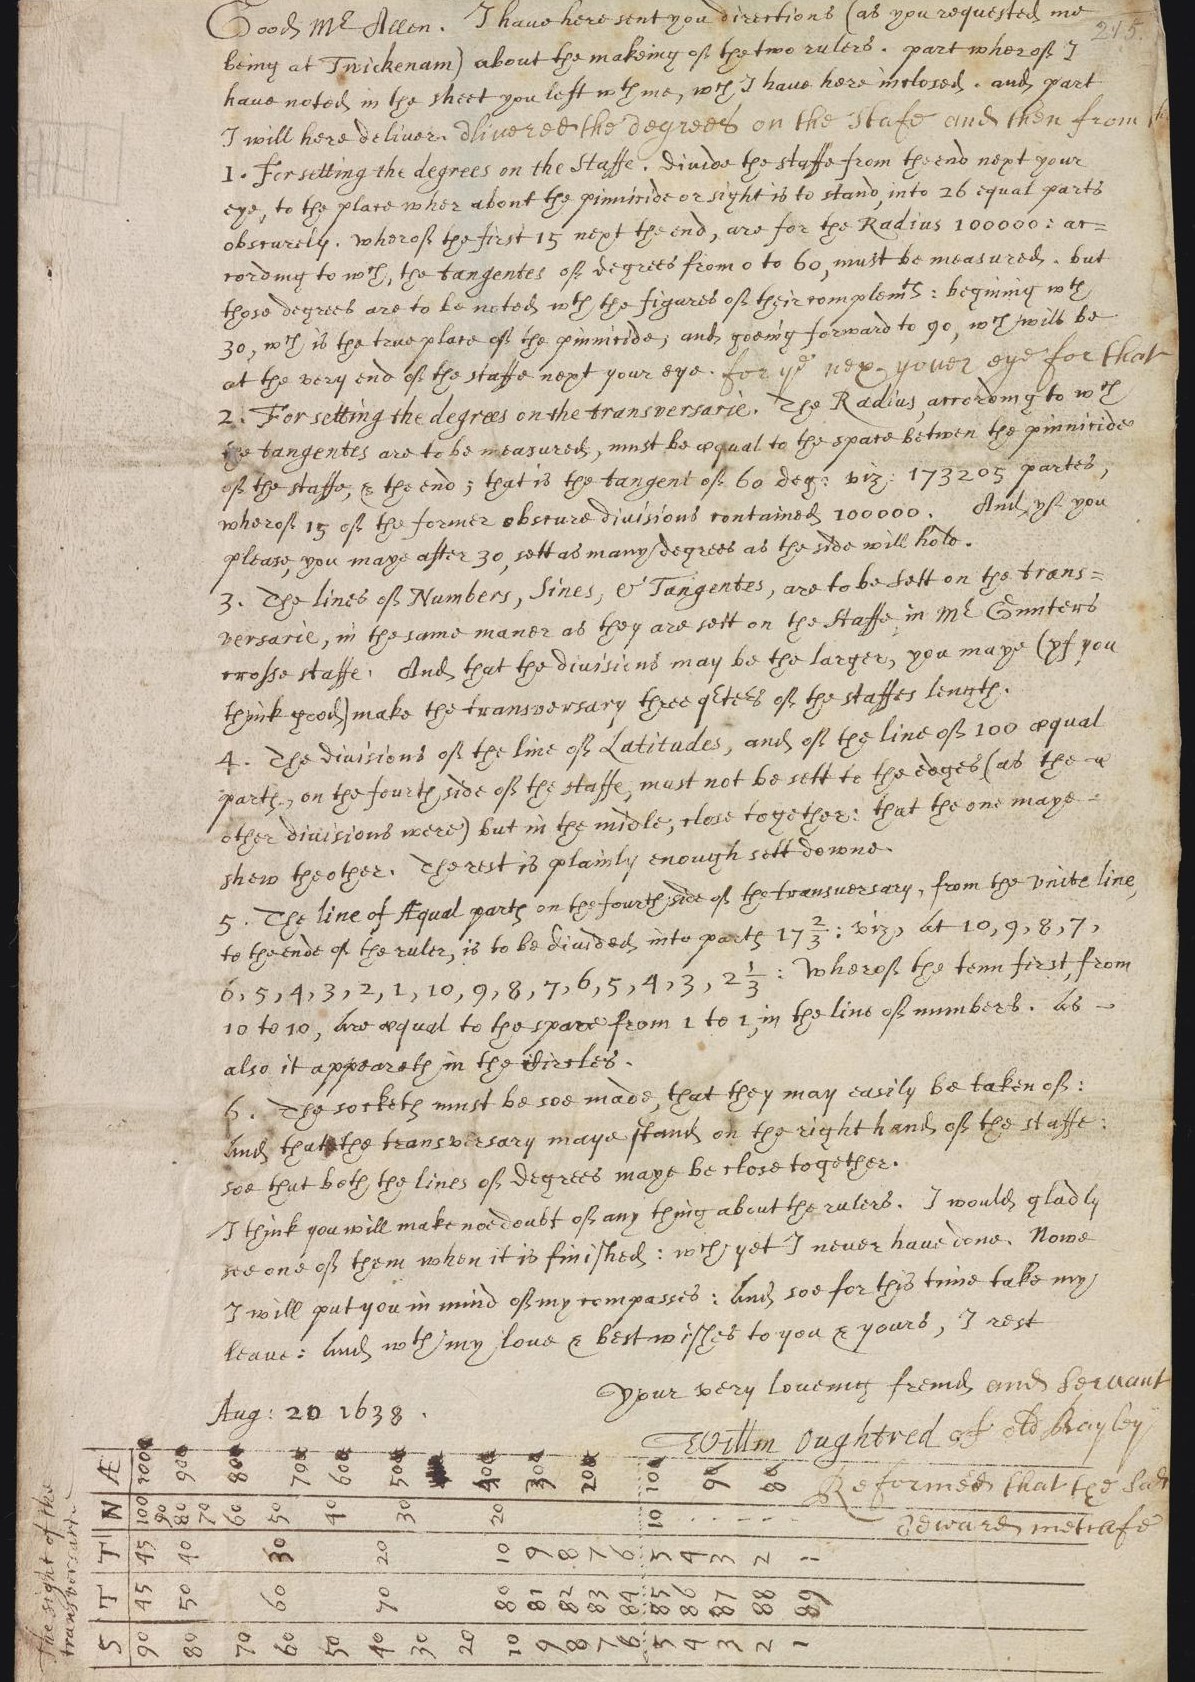 215.
Good Mr Allen. I have here sent you directions (as you requested me
being at Twickenam) about the makeing of the two rulers. part wherof I
have noted in the sheet you left wth me, wch I have here inclosed. and part
I will here deliver. dlivered the degrees on the stafe and then from
1. For setting the degrees on the Staffe. Divide the staffe from the end next your
eye, to the place wher about the pinnicide or sight is to stand, into 26 equal parts
obscurely. wherof the first 15 next the end, are for the Radius 100000: ac=
cording to wch, the tangentes of degrees from 0 to 60, must be measured. but
those degrees are to be noted wth the figures of their complemts: begining wth
30, wch is the true place of the pinnicide; and goeing forward to 90, wch will be
at the very end of the staffe next your eye. for ye nex youer eye for that
2. For setting the degrees on the transversarie. The Radius, according to wch
the tangentes are to be measured, must be æqual to the space betwen the pinnicide
of the staffe, & the end; that is the tangent of 60 deg: viz: 173205 partes,
wherof 15 of the former obscure divisions contained 100000. And yf you
please, you maye after 30, sett as many degrees as the side will hold.
3. The lines of Numbers, Sines, & Tangentes, are to be sett on the trans=
versarie, in the same maner as they are sett on the Staffe in Mr Gunters
crosse staffe. And that the divisions may be the larger, you maye (yf you
think good) make the transversary three qters of the staffes length.
4. The divisions of the line of Latitudes, and of the line of 100 æqual
parts, on the fourth side of the staffe, must not be sett to the edges (as the
other divisions were) but in the midle, close together: that the one maye
shew the other. The rest is plainly enough sett downe.
5. The line of Æqual parts on the fourth side of the transversary, from the Unite line,
to the ende of the ruler, is to be divided into parts 17 2/3: viz, At 10, 9, 8, 7,
6, 5, 4, 3, 2, 1, 10, 9, 8, 7, 6, 5, 4, 3, 2 1/3: Wherof the tenn first, from
10 to 10, Are æqual to the space from 1 to 1, in the line of numbers. As
also it appeareth in the Circles.
6. The sockets must be soe made, that they may easily be taken of:
And that the transversary maye stand on the right hand of the staffe:
soe that both the lines of degrees maye be close together.
I think you will make noe doubt of any thing about the rulers. I would gladly
see one of them when it is finished: wch yet I never have done. Nowe
I will put you in mind of my compasses: And soe for this time take my
leave: And wth my love & best wishes to you & yours, I rest
Your very loveing freind and Servant
Aug: 20 1638.
Willm Oughtred of old Bayley
Reformed that the
Edward metcafe
The sight of the
transversarie
Æ 1000 900 800 700 600 500 400 300 200 100 90 80
N 100 90 80 70 60 50 40 30 20 10
T 45 40 30 20 10 9 8 7 6 5 4 3 2 1
T 45 50 60 70 80 81 82 83 84 85 86 87 88 89
S 90 80 70 60 50 40 30 20 10 9 8 7 6 5 4 3 2 1